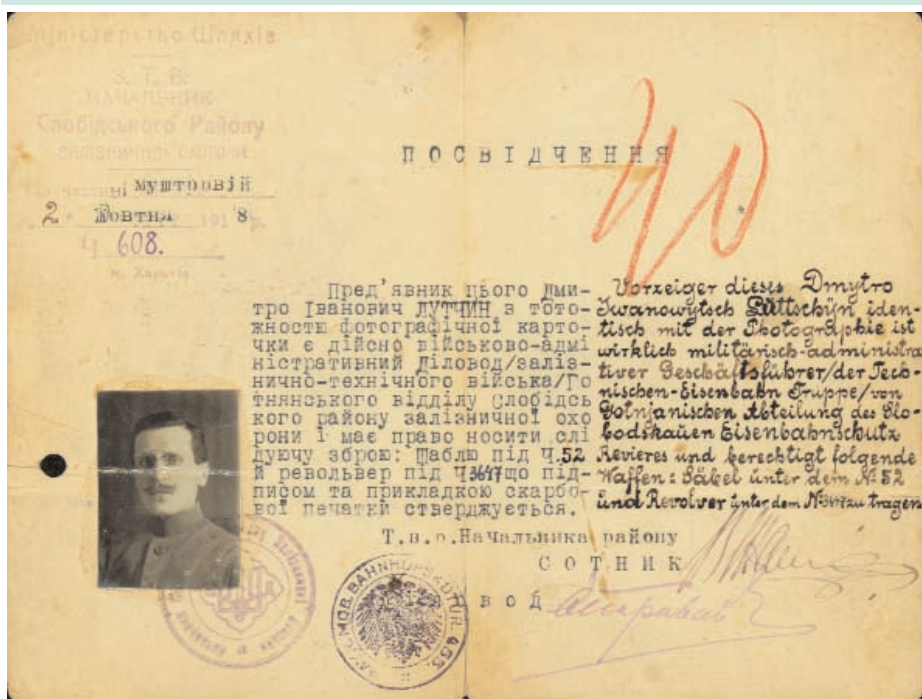 Міністерство Шляхів
З. Т. В.
НАЧАЛЬНИК
Слобідського Району
залізничної охорони
По частині муштровій
2 Жовтня 1918 р.
Ч 608.
м. Харків
ПОСВІДЧЕННЯ
40
Пред'явник цього Дми-
тро Іванович ЛУТЧИН з тото-
жностю фотографічної карто-
чки є дійсно військово-адмі
ністративний Діловод/заліз-
нично-технічного війська/Го
тнянського відділу Слобідсь
кого району залізничної охо
рони і має право носити слі
дуючу зброю: Шаблю під Ч.52
й револьвер під Ч.3647 що під-
писом та прикладкою скарбо-
вої печатки стверджується.
Т.в.о.Начальника району
СОТНИК
ВОД
Vorzeiger dieses Dmytro
Iwanowytsch Lüttschyn iden-
tisch mit der Photographie ist
wirklich militärisch-administra
tiver Geschäftsführer/der Tech-
nischen-Eisenbahn Truppe/von
Gotnjanischen Abteilung des Slo-
bodskauen Eisenbahnschutz
Revieres und berechtigt folgende
Waffen: Säbel unter dem № 52
und Revolver unter dem № 3647 zu tragen
MOB. BAHNHOFSKDTUR. 453.